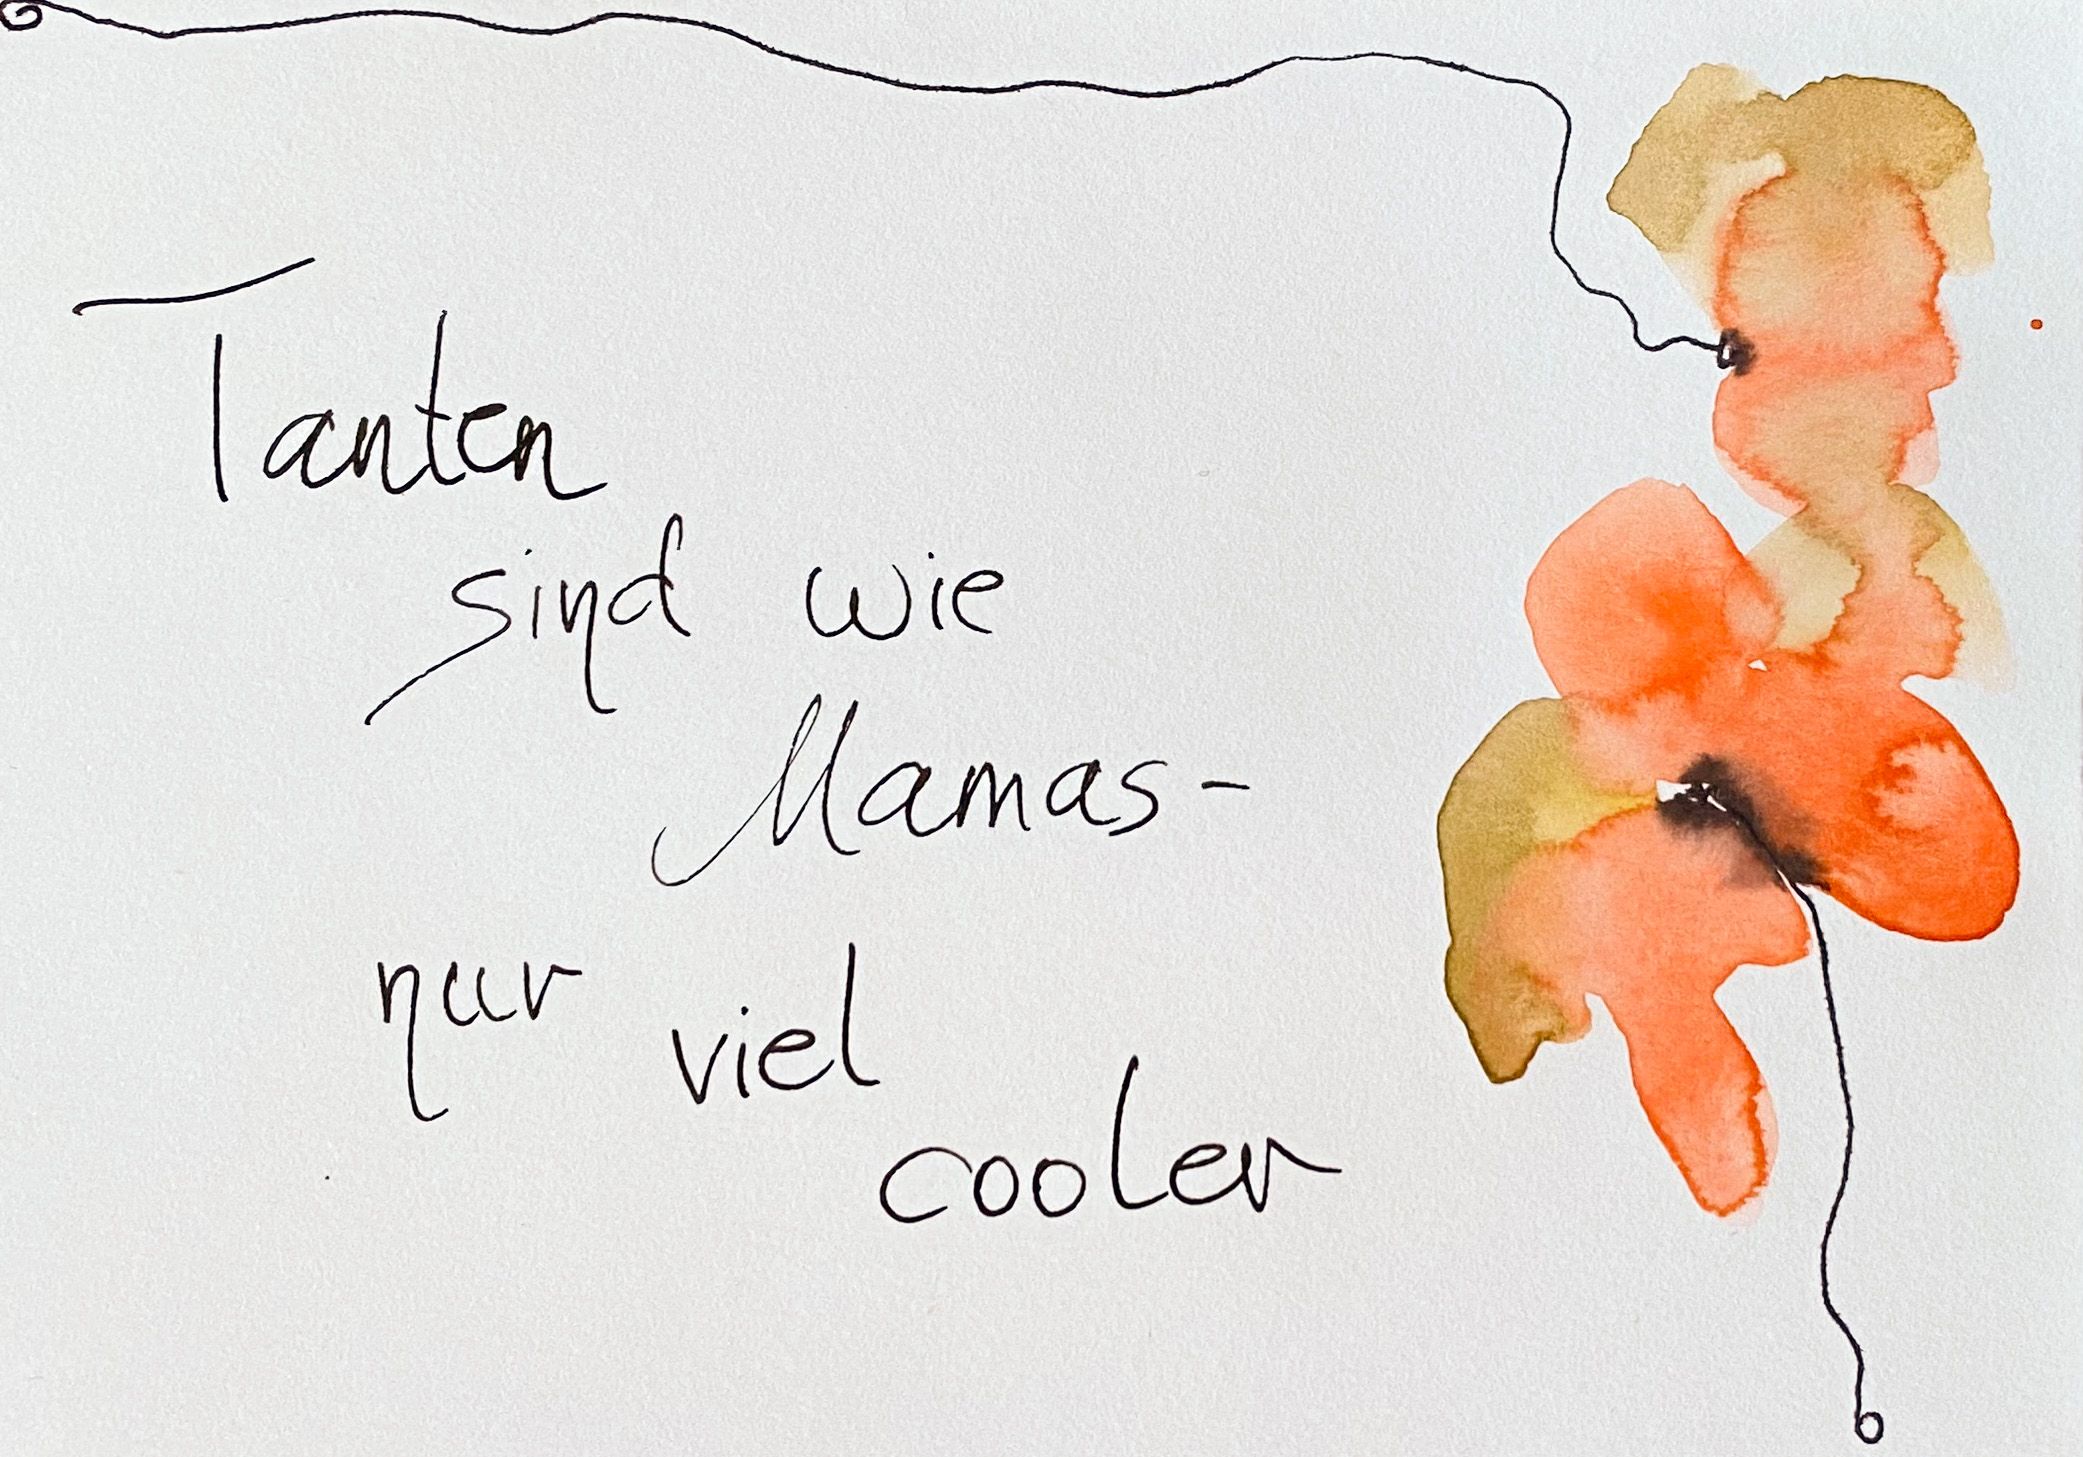 Tanten
sind wie
Mamas-
nur viel
cooler